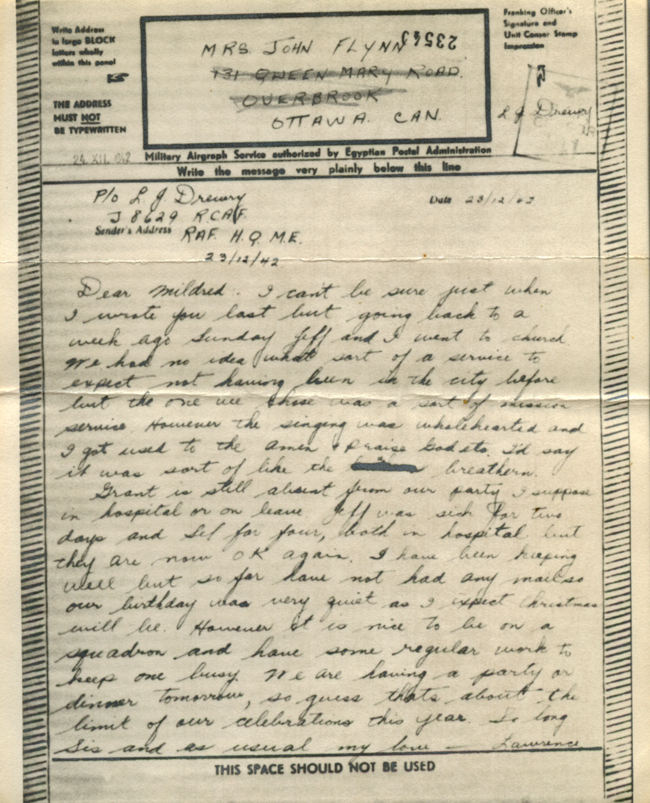 Write Address
in large BLOCK
letters wholly
within this panel
THE ADDRESS
MUST NOT
BE TYPEWRITTEN
MRS. JOHN FLYNN
23543
131 QUEEN MARY ROAD.
OVERBROOK
OTTAWA. CAN.
Franking Officer's
Signature and
Unit Censor Stamp
Impression
L J Drewry
24 XII 1942
Military Airgraph Service authorized by Egyptian Postal Administration
Write the message very plainly below this line
P/o L J Drewry
J 8629 R.C.A.F.
Sender's Address RAF. H.Q. M.E.
Date 23/12/42
23/12/42
Dear Mildred: I can't be sure just when
I wrote you last but going back to a
week ago Sunday Jeff and I went to church
We had no idea what sort of a service to
expect not having been in the city before
but the one we chose was a sort of mission
service However the singing was wholehearted and
I got used to the amen & praise God etc. I'd say
it was sort of like the breathern.
Grant is still absent from our party I suppose
in hospital or on leave Jeff was sick for two
days and for four, both in hospital but
they are now OK again. I have been keeping
well but so far have not had any mail so
our birthday was very quiet as I expect Christmas
will be. However it is nice to be on a
squadron and have some regular work to
keep one busy. We are having a party or
dinner tomorrow, so guess thats about the
limit of our celebrations this year. So long
Sis and as usual my love — Lawrence
THIS SPACE SHOULD NOT BE USED